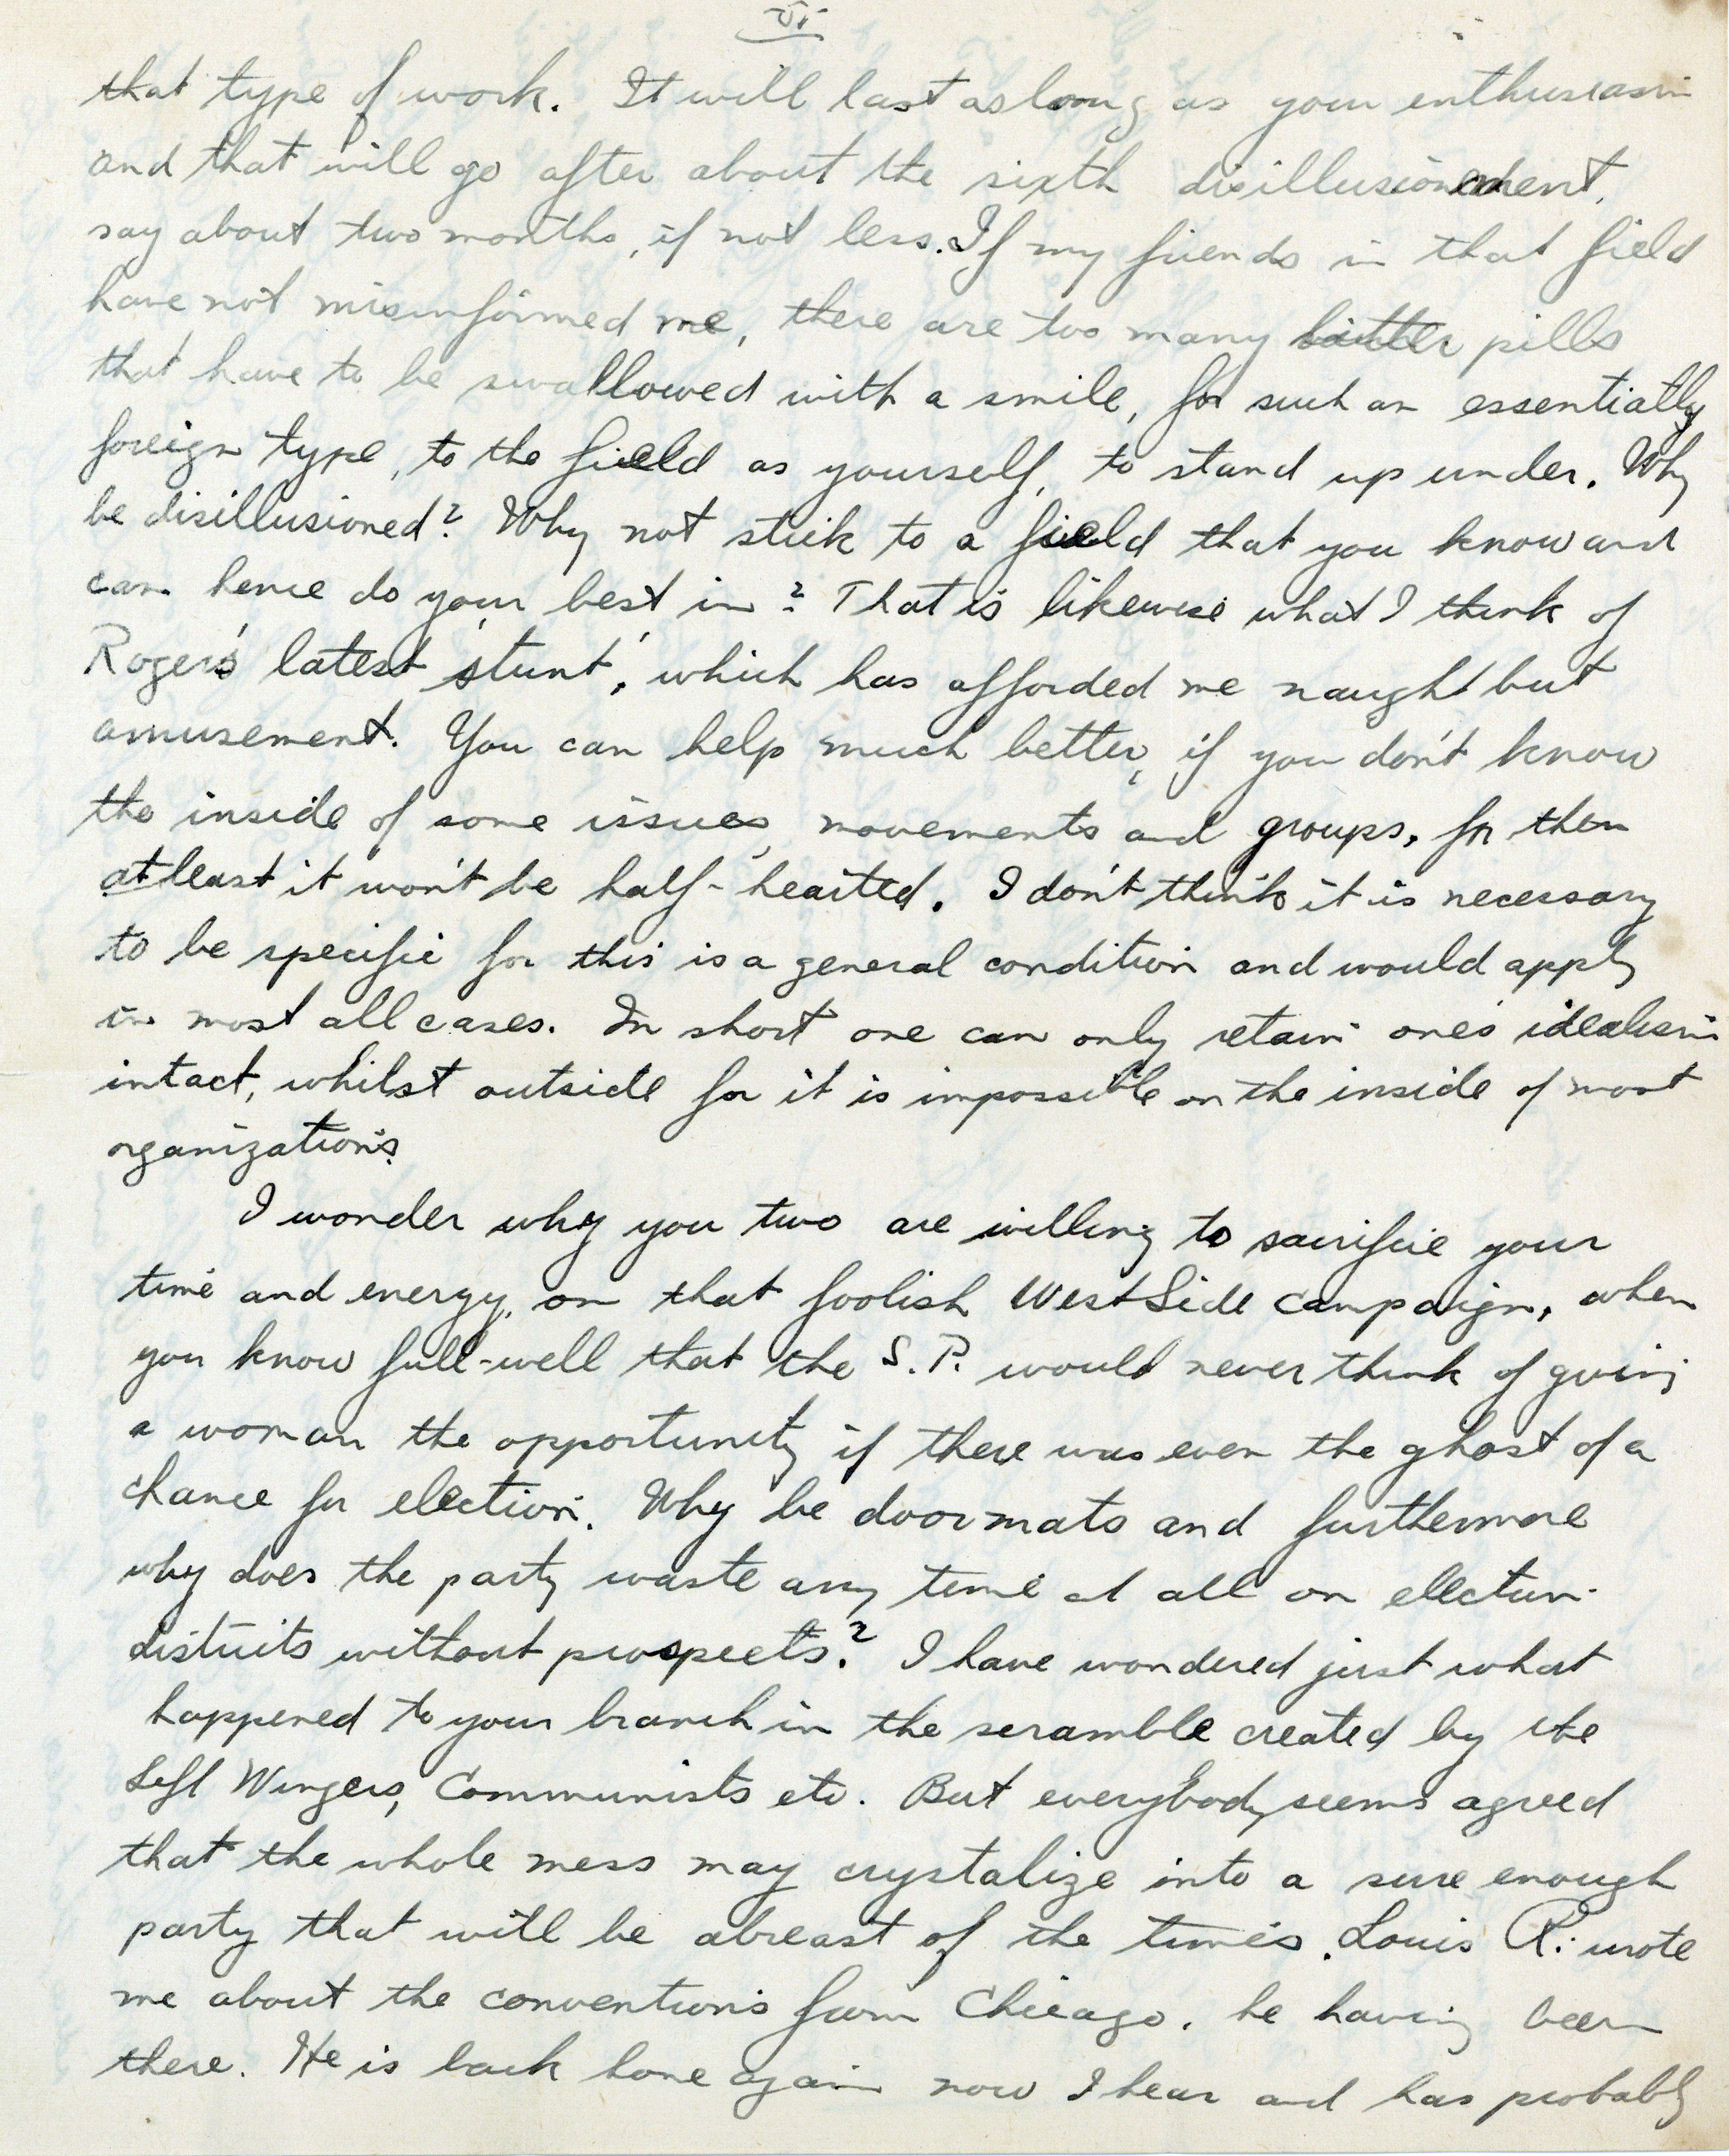 VI
that type of work. It will last as long as your enthusiasm
and that will go after about the sixth disillusionment,
say about two months, if not less. If my friends in that field
have not misinformed me, there are too many bitter pills
that have to be swallowed with a smile, for such an essentially
foreign type, to the field as yourself, to stand up under. Why
be disillusioned? Why not stick to a field that you know and
can hence do your best in? That is likewise what I think of
Roger's latest 'stunt', which has afforded me naught but
amusement. You can help much better, if you don't know
the inside of some issues, movements and groups, for then
at least it won't be half-hearted. I don't think it is necessary
to be specific for this is a general condition and would apply
in most all cases. In short one can only retain one's idealism
intact, whilst outside for it is impossible on the inside of most
organizations.
I wonder why you two are willing to sacrifice your
time and energy, on that foolish West Side campaign, when
you know full-well that the S.P. would never think of giving
a woman the opportunity if there was even the ghost of a
chance for election. Why be doormats and furthermore
why does the party waste any time at all on ellection
districts without prospects? I have wondered just what
happened to your branch in the scramble created by the
Left Wingers, Communists etc. But everybody seems agreed
that the whole mess may crystalize into a sure enough
party that will be abreast of the times. Louis R. wrote
me about the conventions from Chicago, he having been
there. He is back home again now I hear and has probably